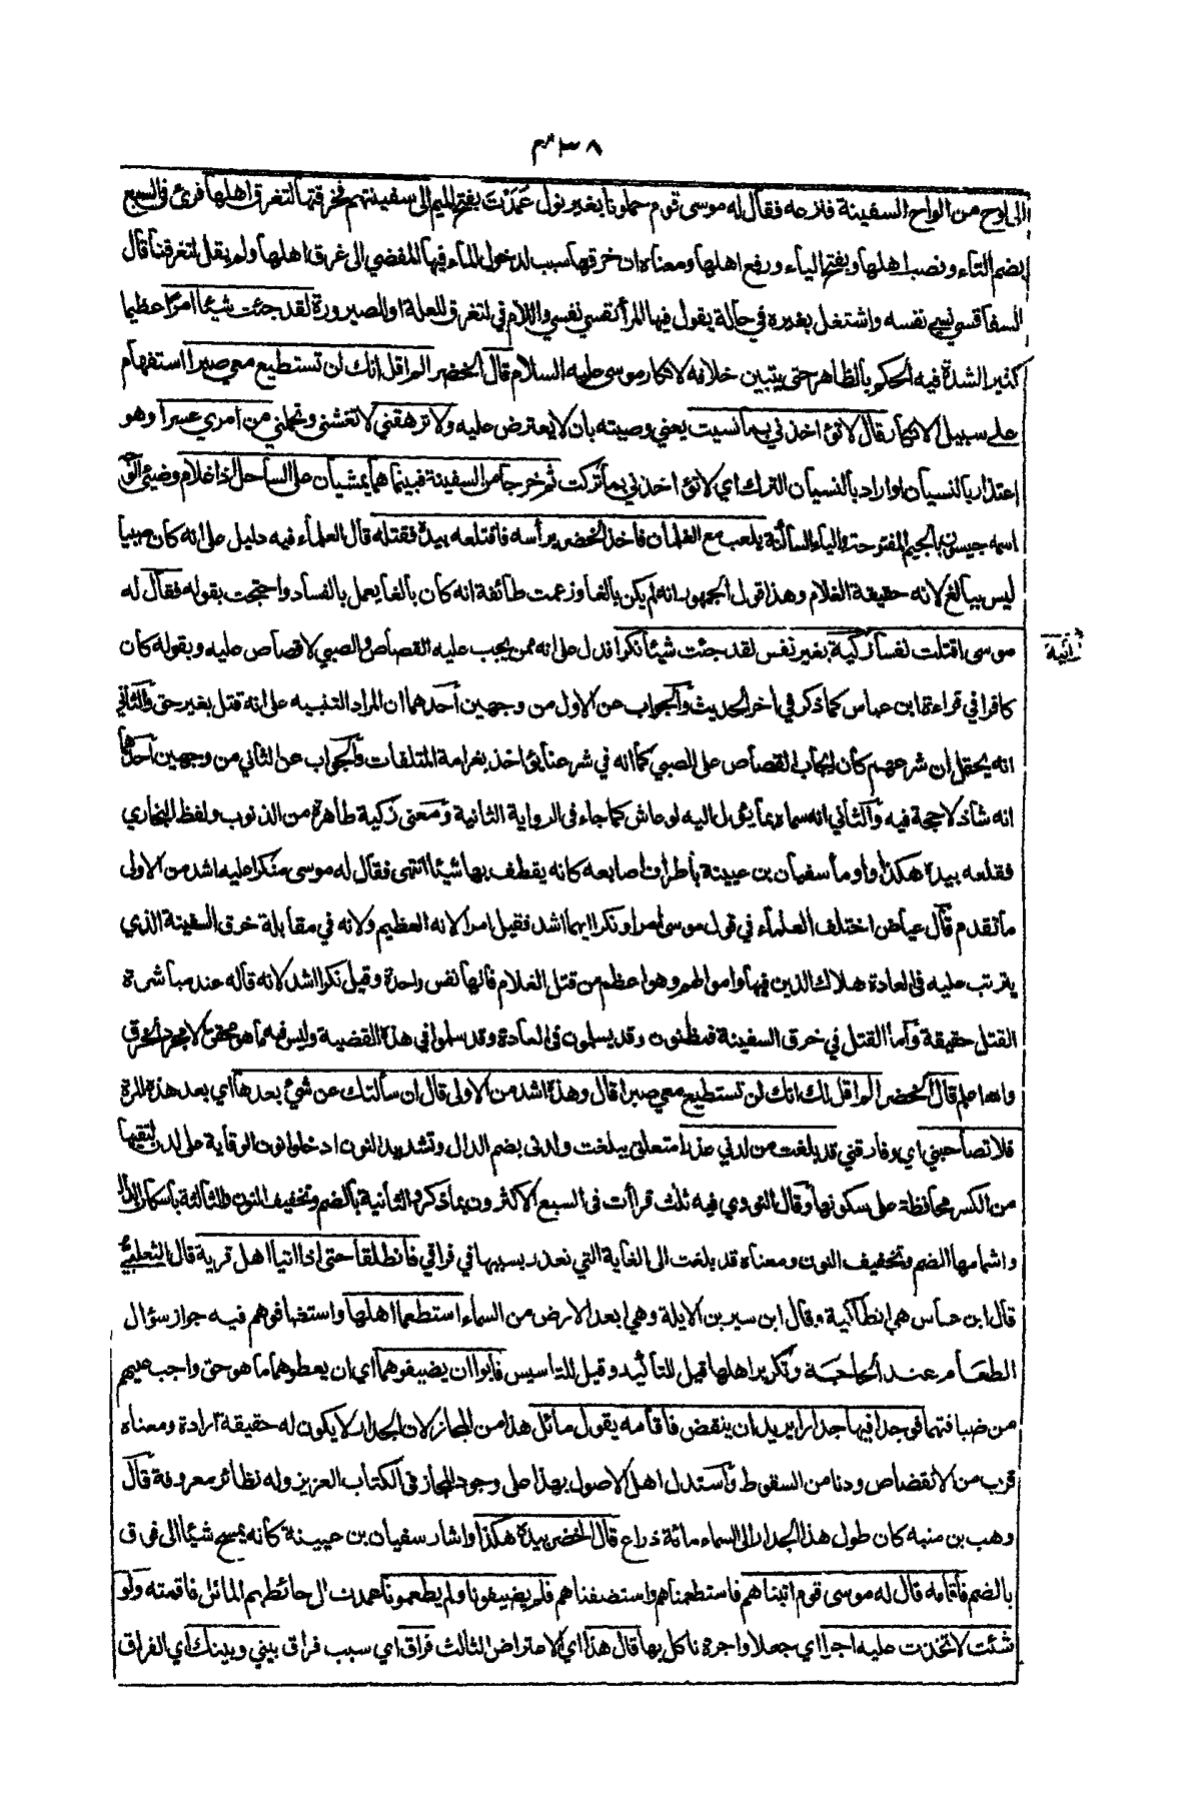 ٤٣٨
الى لوح من الواح السفينة فنزعه فقال له موسى قوم حملونا بغير نول عَمَدْتَ بفتح الميم الى سفينتهم فخرقتها لتغرق اهلها قرئ فى السبع
بضم التاء ونصب اهلها وبفتح الياء ورفع اهلها ومعناه ان خرقها سبب لدخول الماء فيها المفضي الى غرق اهلها ولم يقل لتغرقنا قال
السفاقسي نسي نفسه واشتغل بغيره في حالة يقول فيها المرأ نفسي نفسي واللام في لتغرق للعلة او الصيرورة لقد جئت شيئا امرًا عظيما
كثير الشدة فيه الحكم بالظاهر حتى يتبين خلافه لانكار موسى عليه السلام قال الخضر الم اقل انك لن تستطيع معي صبرا استفهام
على سبيل الانكار قال لا تؤاخذني بما نسيت يعني وصيته بان لا يعترض عليه ولا ترهقني لا تغشني وتحملني من امري عسرا وهو
اعتذار بالنسيان او اراد بالنسيان الترك اي لا تؤاخذني بما تركت ثم خرجا من السفينة فبينما هما يمشيان على الساحل اذا غلام وضيئ
اسمه جيسون بالجيم المفتوحة والياء الساكنة يلعب مع الغلمان فاخذ الخضر برأسه فاقتلعه بيده فقتله قال العلماء فيه دليل على انه كان صبيا
ليس ببالغ لانه حقيقة الغلام وهذا قول الجمهور انه لم يكن بالغا وزعمت طائفة انه كان بالغا يعمل بالفساد واحتجت بقوله فقال له
موسى اقتلت نفسا زكية بغير نفس لقد جئت شيئا نكرا فدل على انه ممن يجب عليه القصاص والصبي لا قصاص عليه وبقوله كان
كافرا في قراءة ابن عباس كما ذكر في اخر الحديث والجواب عن الاول من وجهين أحدهما ان المراد التنبيه على انه قتل بغير حق والثاني
انه يحتمل ان شرعهم كان ايجاب القصاص على الصبي كما انه في شرعنا يؤاخذ بغرامة المتلفات والجواب عن الثاني من وجهين أحدهما
انه شاذ لا حجة فيه والثاني انه سماه بما يؤل اليه لو عاش كما جاء فى الرواية الثانية ومعنى زكية طاهرة من الذنوب ولفظ البخاري
فقلعه بيده هكذا واومأ سفيان بن عيينة باطراف اصابعه كانه يقطف بها شيئا انتهى فقال له موسى منكرا عليه اشد من الاولى
ما تقدم قال عياض اختلف العلماء في قول موسى امرا ونكرا ايهما اشد فقيل امرا لانه العظيم ولانه في مقابلة خرق السفينة الذي
يترتب عليه فى العادة هلاك الذين فيها واموالهم وهو اعظم من قتل الغلام فانها نفس واحدة وقيل نكرا اشد لانه قاله عند مباشرة
القتل حقيقة وأما القتل في خرق السفينة فمظنون وقد يسلمون فى العادة وقد سلموا في هذه القضية وليس فيه ما هو محقق الا مجرد الخرق
والله اعلم قال الخضر الم اقل لك انك لن تستطيع معي صبرا قال وهذه اشد من الاولى قال ان سألتك عن شئ بعدها اي بعد هذه المرة
فلا تصاحبني اي وفارقني قد بلغت من لدني عذرا متعلق ببلغت ولدنى بضم الدال وتشديد النون ادخلوا نون الوقاية على لدن لتقيها
من الكسر محافظة على سكونها وقال النووي فيه ثلث قرأت فى السبع الاكثرون بما ذكر والثانية بالضم وتخفيف النون والثالثة باسكان الدال
واشمامها الضم وتخفيف النون ومعناه قد بلغت الى الغاية التي تعذر بسببها في فراقي فانطلقا حتى اذا اتيا اهل قرية قال الثعلبي
قال ابن عباس هي انطاكية وقال ابن سيرين الايلة وهي ابعد الارض من السماء استطعما اهلها واستضافوهم فيه جواز سؤال
الطعام عند الحاجة وتكرير اهلها قيل للتأكيد وقيل للتاسيس فابوا ان يضيفوهما اي ان يعطوهما ما هو حق واجب عليهم
من ضيافتهما فوجدا فيها جدارا يريد ان ينقض فاقامه يقول مائل هذا من المجاز لان الجدار لا يكون له حقيقة ارادة ومعناه
قرب من الانقضاض ودنا من السقوط وأستدل اهل الاصول بهذا على وجود المجاز فى الكتاب العزيز وله نظائر معروفة قال
وهب بن منبه كان طول هذا الجدار الى السماء مائة ذراع قال الخضر بيده هكذا واشار سفيان بن عيينة كأنه يمسح شيئا الى فوق
بالضم فاقامه قال له موسى قوم اتيناهم فاستطعمناهم واستضفناهم فلم يضيفونا ولم يطعمونا عمدت الى حائطهم المائل فاقمته ولو
شئت لاتخذت عليه اجرا اي جعلا واجرة ناكل بها قال هذا اي الاعتراض الثالث فراق اي سبب فراق بيني وبينك اي الفراق